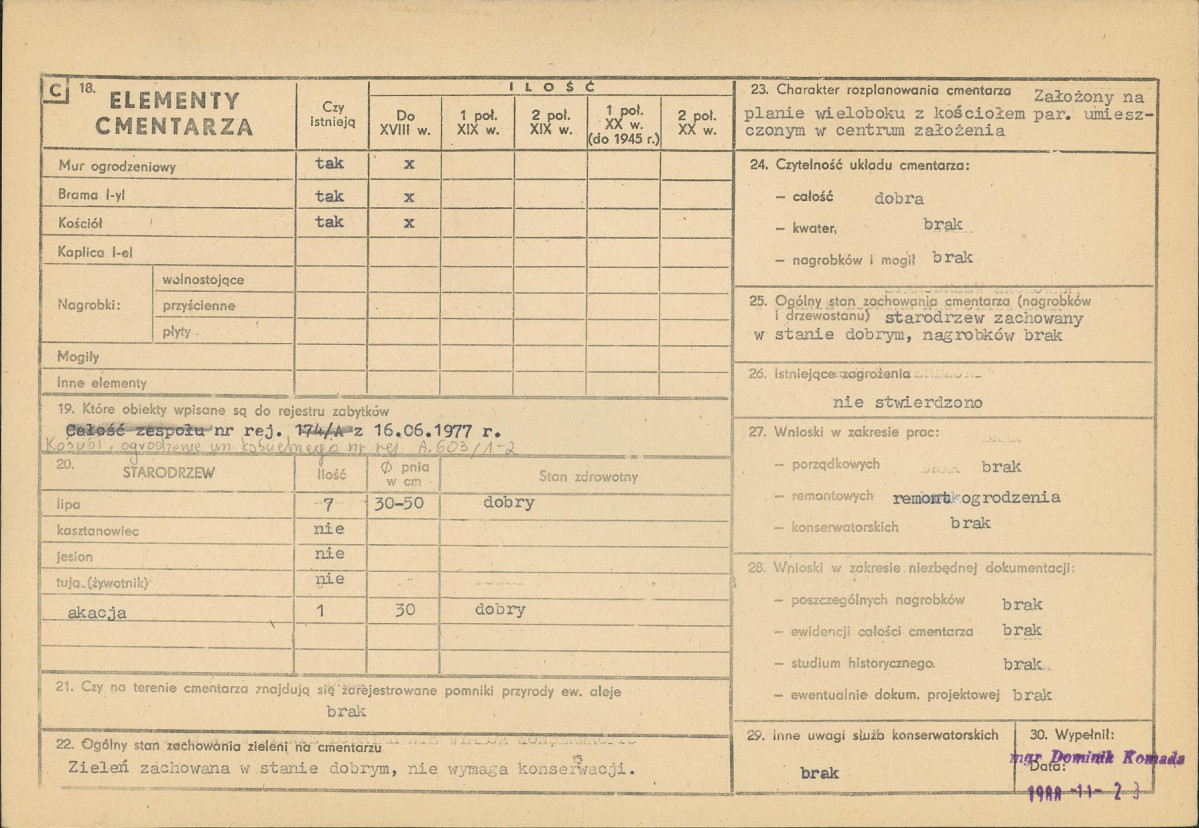 C 18. ELEMENTY CMENTARZA
Czy istnieją
ILOŚĆ
Do XVIII w.
1 poł. XIX w.
2 poł. XIX w.
1 poł. XX w. (do 1945 r.)
2 poł. XX w.
Mur ogrodzeniowy tak x
Brama I-yl tak x
Kościół tak x
Kaplica I-el
Nagrobki:
wolnostojące
przyścienne
płyty
Mogiły
Inne elementy
19. Które obiekty wpisane są do rejestru zabytków
Całość zespołu nr rej. 174/A z 16.06.1977 r.
Kościół, ogrodzenie nr rej A.603/1-2
20. STARODRZEW
Ilość
Ø pnia w cm
Stan zdrowotny
lipa 7 30-50 dobry
kasztanowiec nie
jesion nie
tuja (żywotnik) nie
akacja 1 30 dobry
21. Czy na terenie cmentarza znajdują się zarejestrowane pomniki przyrody ew. aleje
brak
22. Ogólny stan zachowania zieleni na cmentarzu
Zieleń zachowana w stanie dobrym, nie wymaga konserwacji.
23. Charakter rozplanowania cmentarza Założony na
planie wieloboku z kościołem par. umiesz-
czonym w centrum założenia
24. Czytelność układu cmentarza:
– całość dobra
– kwater, brak
– nagrobków i mogił brak
25. Ogólny stan zachowania cmentarza (nagrobków
i drzewostanu) starodrzew zachowany
w stanie dobrym, nagrobków brak
26. Istniejące zagrożenia
nie stwierdzono
27. Wnioski w zakresie prac:
– porządkowych brak
– remontowych remont ogrodzenia
– konserwatorskich brak
28. Wnioski w zakresie niezbędnej dokumentacji:
– poszczególnych nagrobków brak
– ewidencji całości cmentarza brak
– studium historycznego. brak
– ewentualnie dokum. projektowej brak
29. Inne uwagi służb konserwatorskich
brak
30. Wypełnił:
mgr Dominik Komada
Data:
1988 -11- 23